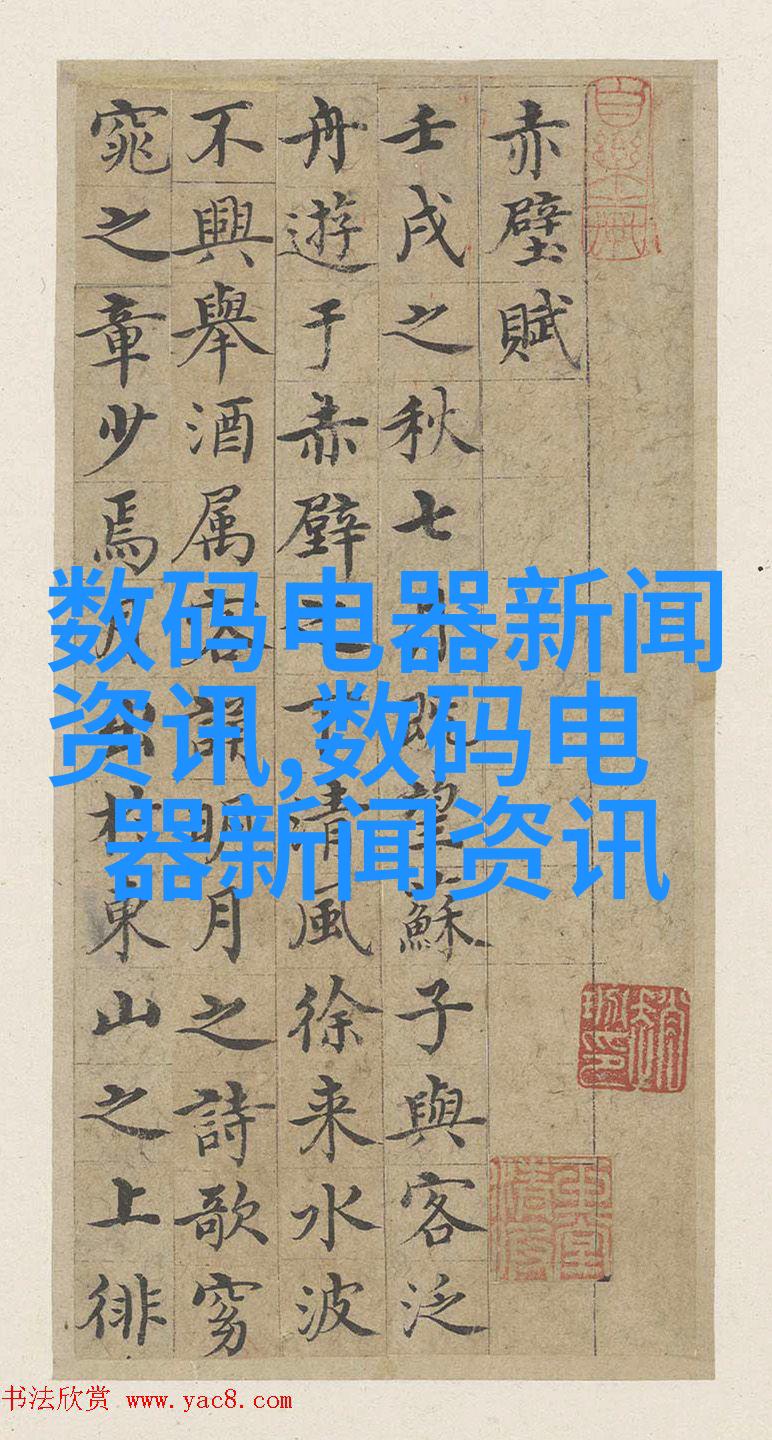 赤壁賦
壬戌之秋七月既望蘇子與客泛
舟遊于赤壁之下清風徐来水波
不興舉酒属客誦明月之詩歌窈
窕之章少焉月出於東山之上徘
数码电器新闻
资讯,数码电
器新闻资讯
书法欣赏 www.yac8.com